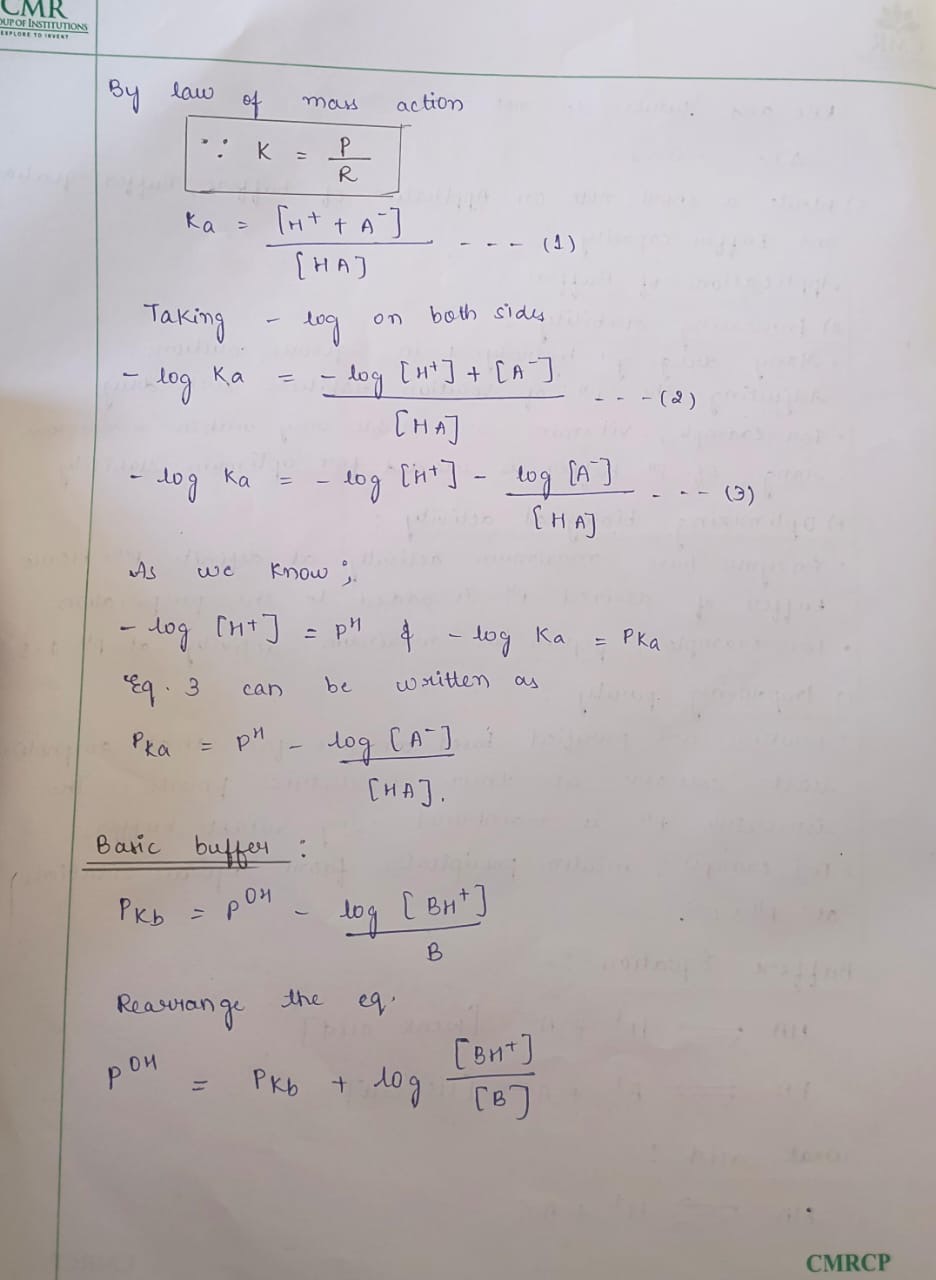 CMR
OUP OF INSTITUTIONS
EXPLORE TO INVENT
By law of mass action
∵ K = P/R
Ka = [H⁺ + A⁻]/[HA] - - - (1)
Taking - log on both sides
- log Ka = - log [H⁺] + [A⁻]/[HA] - - - (2)
- log Ka = - log [H⁺] - log [A⁻]/[HA] - - - (3)
As we know ;
- log [H⁺] = pᴴ & - log Ka = PKa
Eq. 3 can be written as
PKa = pᴴ - log [A⁻]/[HA].
Basic buffer :
PKb = pᴼᴴ - log [BH⁺]/B
Rearrange the eq.
pᴼᴴ = PKb + log [BH⁺]/[B]
CMRCP